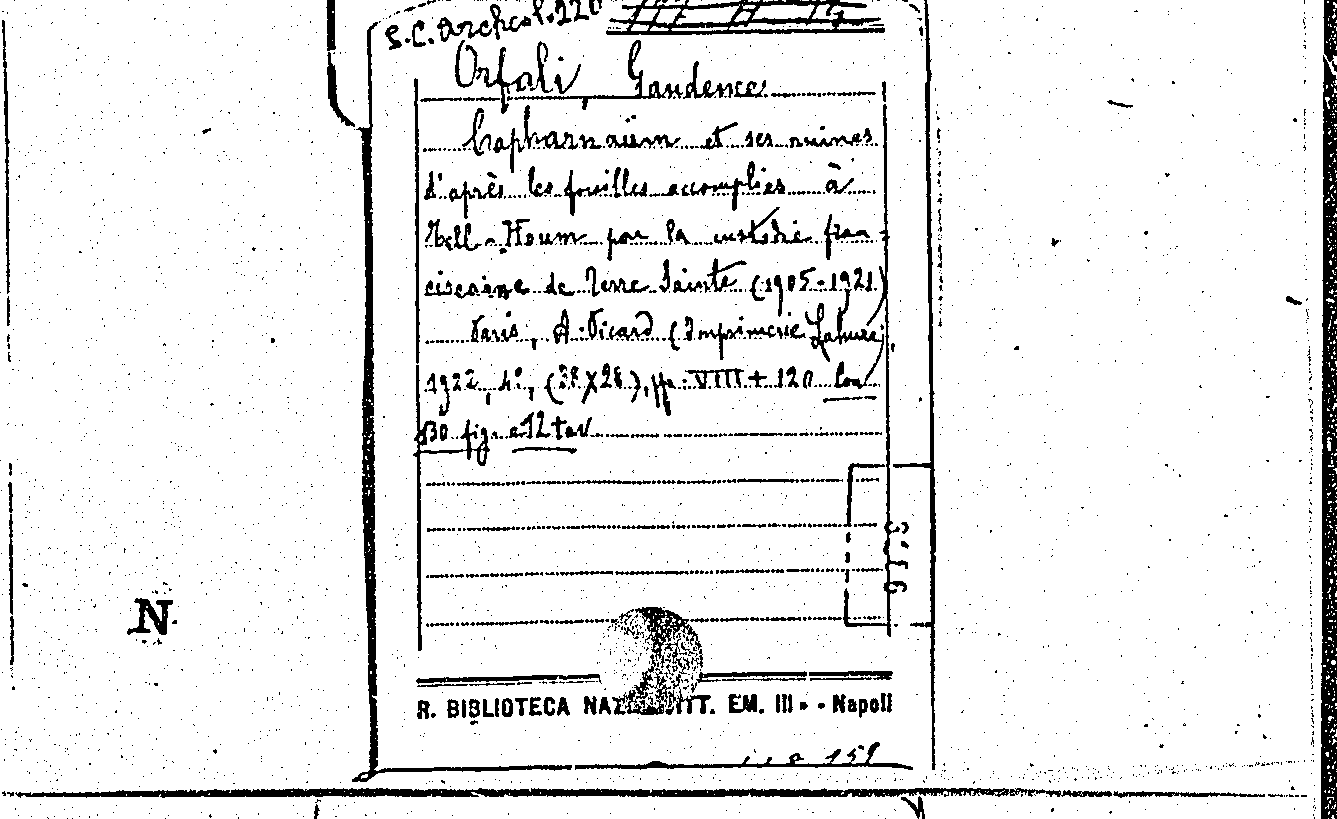 S.C. Archeol. 220
Orfali, Gaudence
Capharnaüm et ses ruines
d'après les fouilles accomplies à
Tell-Houm par la custodie fran=
ciscaine de Terre Sainte (1905-1921)
Paris, A. Picard (Imprimerie Lahure),
1922, 4°, (38X28), pp. VIII + 120 con
130 fig. e 12 tav
N
R. BIBLIOTECA NAZ. VITT. EM. III - - Napoli